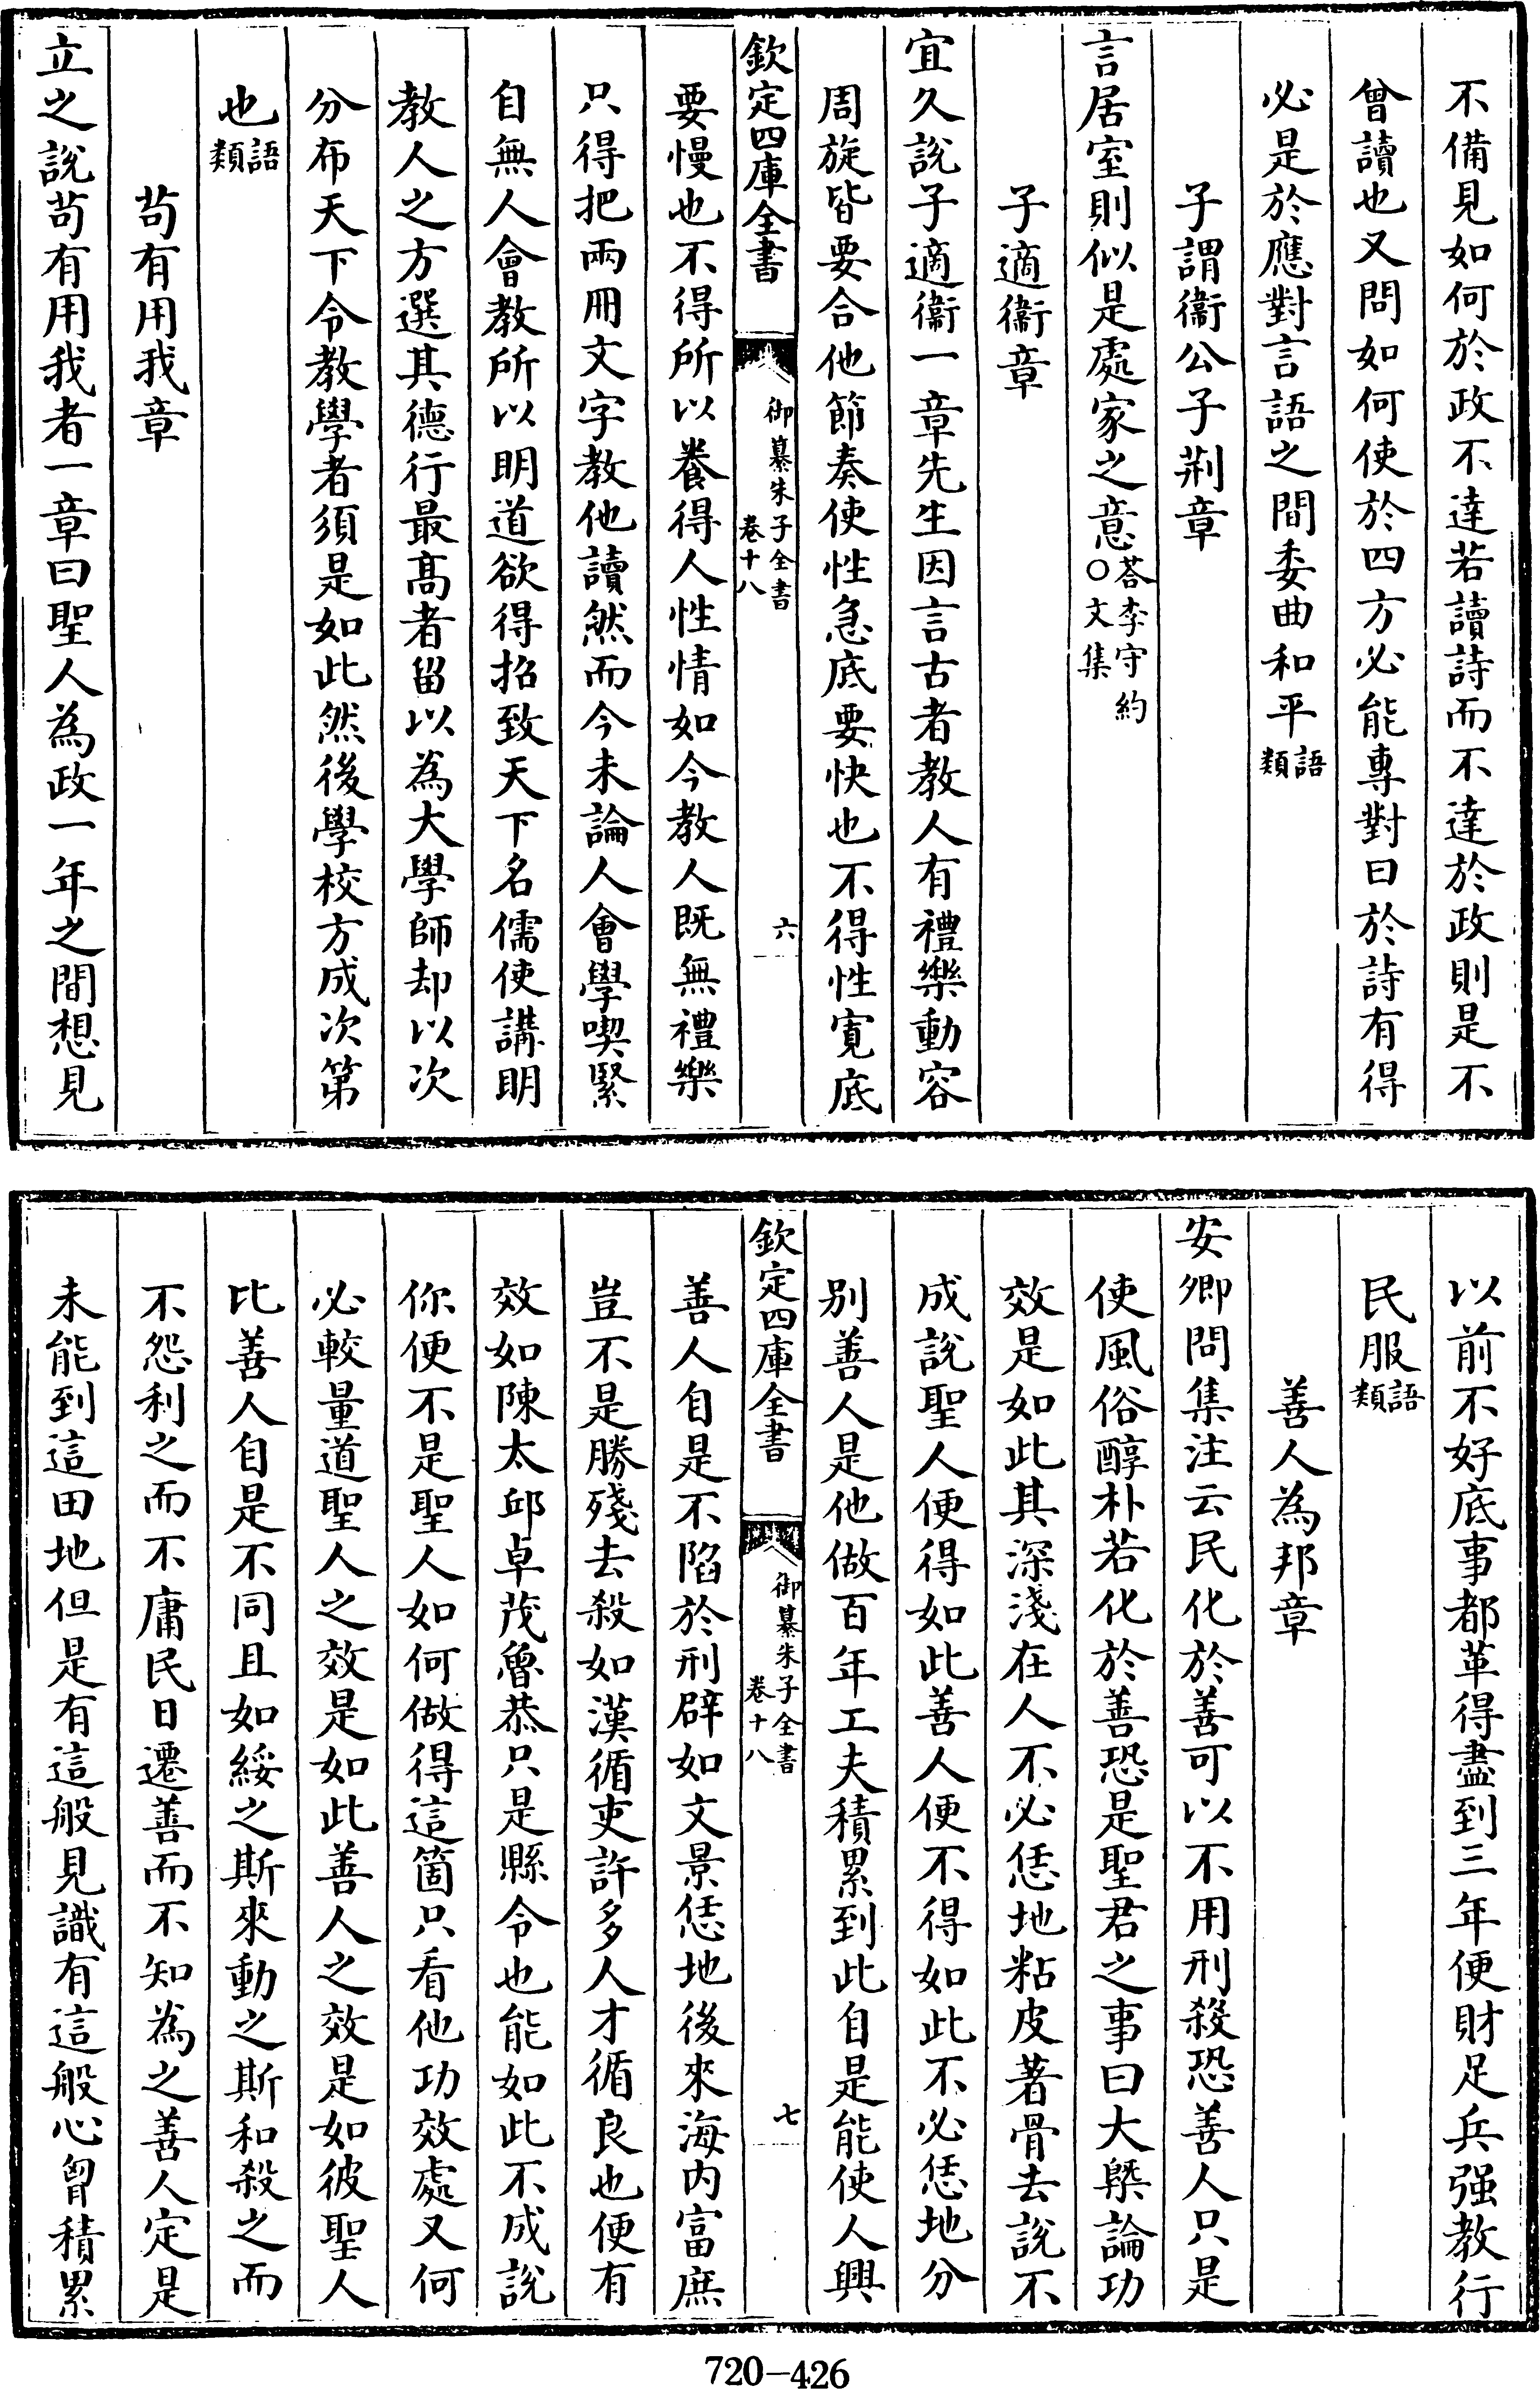 不備見如何於政不達若讀詩而不達於政則是不
曾讀也又問如何使於四方必能專對曰於詩有得
必是於應對言語之間委曲和平語類
子謂衞公子荆章
言居室則似是處家之意答李守約○文集
子適衞章
宜久說子適衞一章先生因言古者教人有禮樂動容
周旋皆要合他節奏使性急底要快也不得性寛底
欽定四庫全書 御纂朱子全書 卷十八 六
要慢也不得所以養得人性情如今教人既無禮樂
只得把兩冊文字教他讀然而今未論人會學喫緊
自無人會教所以明道欲得招致天下名儒使講明
教人之方選其德行最高者留以為大學師却以次
分布天下令教學者須是如此然後學校方成次第
也語類
茍有用我章
立之說茍有用我者一章曰聖人為政一年之間想見
以前不好底事都革得盡到三年便財足兵强教行
民服語類
善人為邦章
安卿問集注云民化於善可以不用刑殺恐善人只是
使風俗醇朴若化於善恐是聖君之事曰大槩論功
效是如此其深淺在人不必恁地粘皮著骨去說不
成說聖人便得如此善人便不得如此不必恁地分
别善人是他做百年工夫積累到此自是能使人興
欽定四庫全書 御纂朱子全書 卷十八 七
善人自是不陷於刑辟如文景恁地後來海内富庶
豈不是勝殘去殺如漢循吏許多人才循良也便有
效如陳太邱卓茂魯恭只是縣令也能如此不成說
你便不是聖人如何做得這箇只看他功效處又何
必較量道聖人之效是如此善人之效是如彼聖人
比善人自是不同且如綏之斯來動之斯和殺之而
不怨利之而不庸民日遷善而不知為之善人定是
未能到這田地但是有這般見識有這般心胷積累
720-426